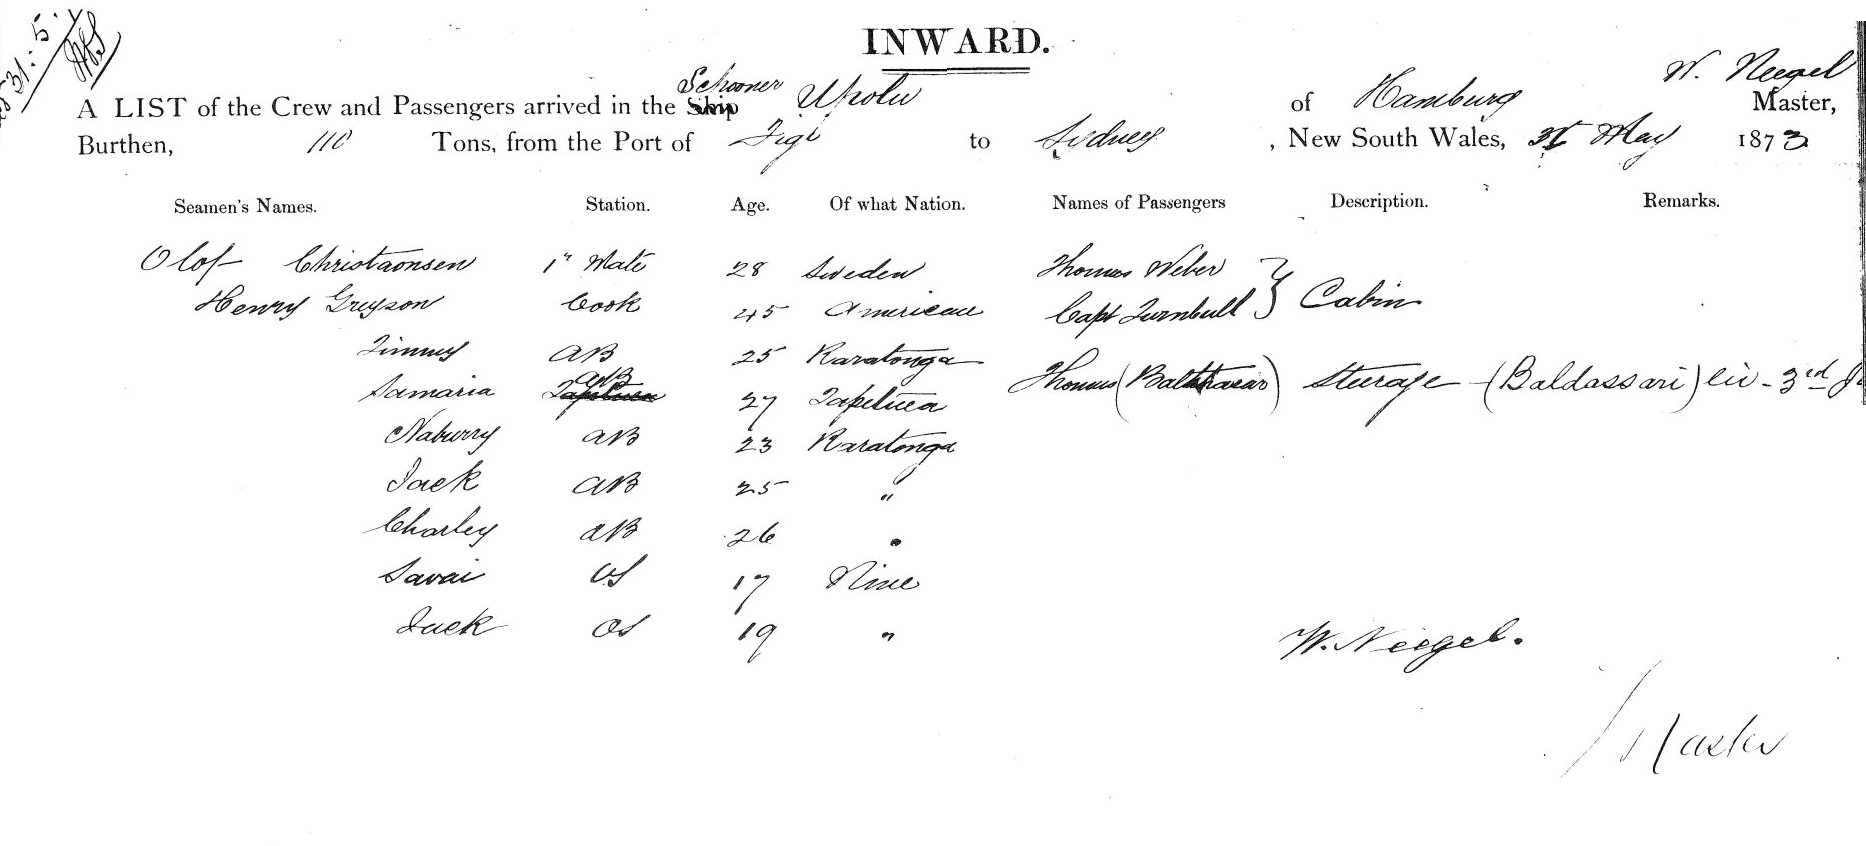 31: 5.
INWARD.
W. Neegel
A LIST of the Crew and Passengers arrived in the Ship Schooner Upolu of Hamburg Master,
Burthen, 110 Tons, from the Port of Figi to Sydney, New South Wales, 31 May 1873
Seamen's Names. Station. Age. Of what Nation. Names of Passengers Description. Remarks.
Olof Christaonsen 1r Mate 28 Sweden Thomas Weber
Henry Greyson Cook 45 American Capt Turnbull } Cabin
Jimmy AB 25 Raratonga
Samaria AB 27 Tapeluea Thomas (Balthasar) Steerage - (Baldassari) - 3rd
Naburry AB 23 Raratonga
Jack AB 25 "
Charley AB 26 "
Savai OS 17 Niue
Jack OS 19 "
W. Neegel.
Master